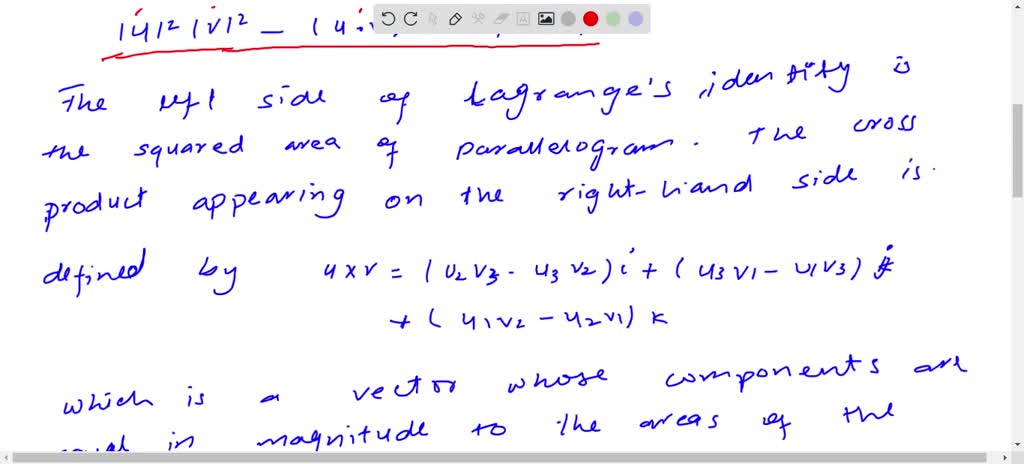 |u|² |v|² - (u.v
The left side of Lagrange's identity is
the squared area of parallelogram. The cross
product appearing on the right-hand side is.
defined by u x v = (u2 v3 - u3 v2) i + (u3 v1 - u1 v3) j
+ (u1 v2 - u2 v1) k
which is a vector whose components are
in magnitude to the areas of the